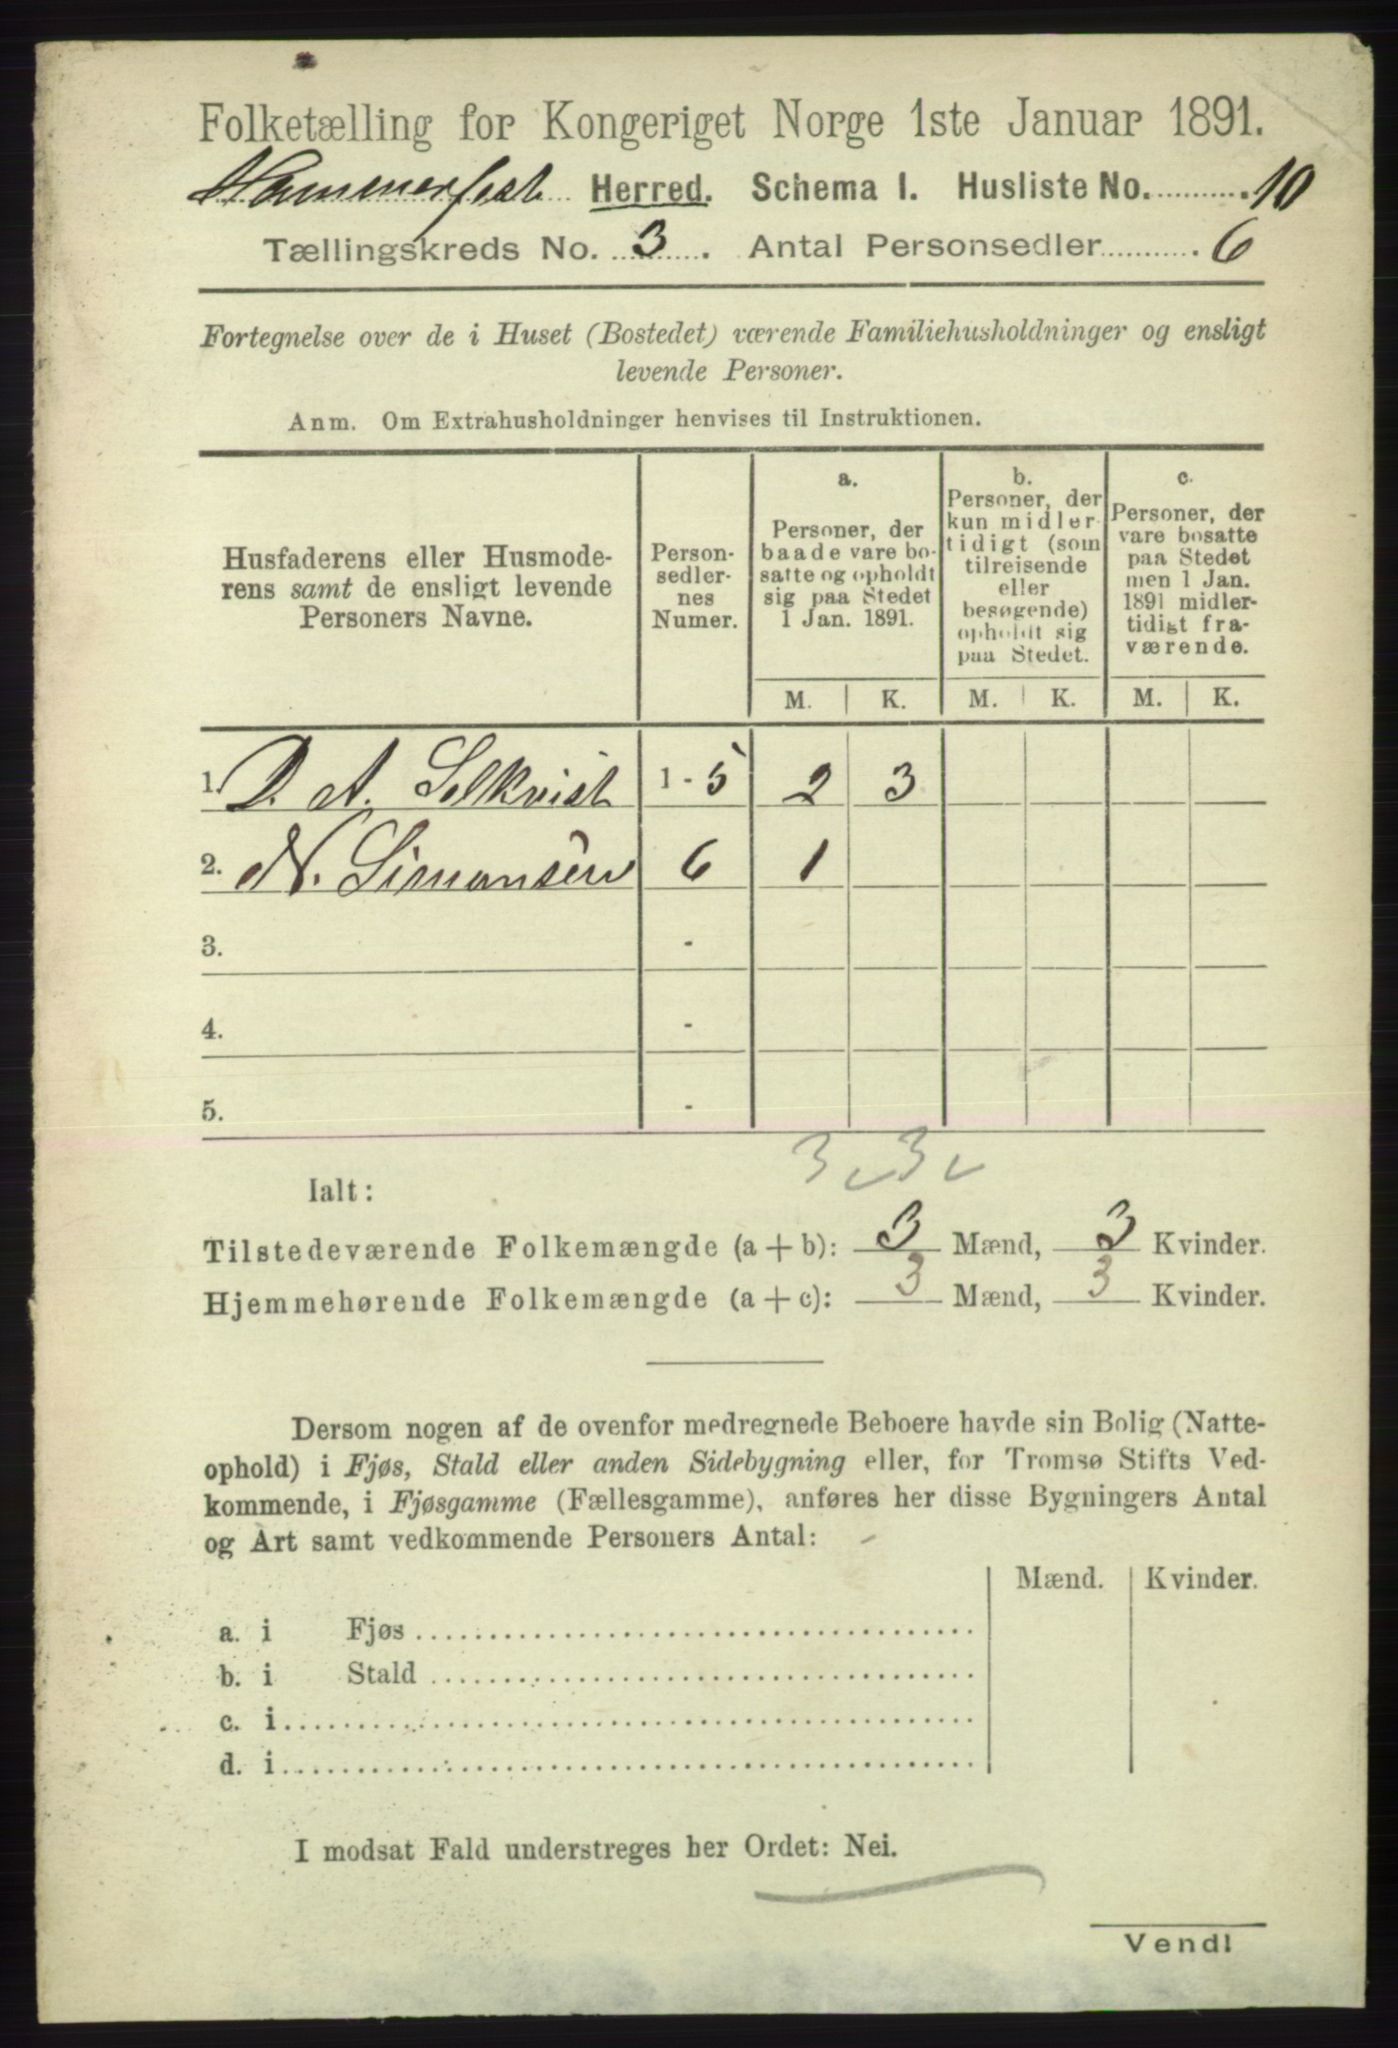 Folketælling for Kongeriget Norge 1ste Januar 1891.
Hammerfest Herred. Schema I. Husliste No. 10
Tællingskreds No. 3. Antal Personsedler 6
Fortegnelse over de i Huset (Bostedet) værende Familiehusholdninger og ensligt
levende Personer.
Anm. Om Extrahusholdninger henvises til Instruktionen.
Husfaderens eller Husmode-
rens samt de ensligt levende
Personers Navne.
Person-
sedler-
nes
Numer.
a.
Personer, der
baade vare bo-
satte og opholdt
sig paa Stedet
1 Jan. 1891.
b.
Personer, der
kun midler-
tidigt (som
tilreisende
eller
besøgende)
opholdt sig
paa Stedet.
c.
Personer, der
vare bosatte
paa Stedet
men 1 Jan.
1891 midler-
tidigt fra-
værende.
M. K. M. K. M. K.
1. D. A. Selkvist 1 - 5 2 3
2. N. Simonsen 6 1
3. -
4. -
5. -
3 3
Ialt:
Tilstedeværende Folkemængde (a + b): 3 Mænd, 3 Kvinder.
Hjemmehørende Folkemængde (a + c): 3 Mænd, 3 Kvinder.
Dersom nogen af de ovenfor medregnede Beboere havde sin Bolig (Natte-
ophold) i Fjøs, Stald eller anden Sidebygning eller, for Tromsø Stifts Ved-
kommende, i Fjøsgamme (Fællesgamme), anføres her disse Bygningers Antal
og Art samt vedkommende Personers Antal: -
Mænd. Kvinder.
a. i Fjøs
b. i Stald
c. i
d. i
I modsat Fald understreges her Ordet: Nei.
Vend!